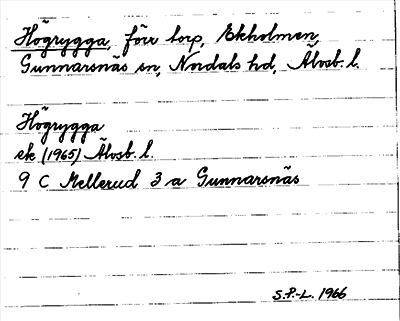 Högrygga, förr torp, Ekholmen,
Gunnarsnäs sn, Nordals hd, Älvsb. l.
Högrygga
ek (1965) Älvsb. l.
9 C Mellerud 3 a Gunnarsnäs
S.P.-L. 1966